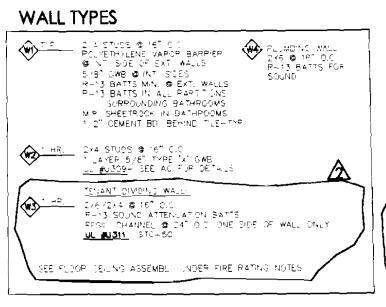 WALL TYPES
W1 TYP. 2X4 STUDS @ 16" O.C.
POLYETHYLENE VAPOR BARRIER
@ INT SIDE OF EXT. WALLS
5/8" GWB @ INT SIDES
R-13 BATTS MIN. @ EXT. WALLS
R-13 BATTS IN ALL PARTITIONS
SURROUNDING BATHROOMS
M.R. SHEETROCK IN BATHROOMS
1/2" CEMENT BD. BEHIND TILE-TYP
W4 PLUMBING WALL
2X6 @ 16" O.C.
R-13 BATTS FOR
SOUND
W2 1 HR. 2X4 STUDS @ 16" O.C.
1 LAYER 5/8" TYPE "X" GWB
UL #U309- SEE FOR DETAILS
2
TENANT DIVIDING WALL:
W3 1 HR. 2/6/2/4 @ 16" O.C.
R-13 SOUND ATTENUATION BATTS
CHANNEL @ 24" O.C. ONE SIDE OF WALL ONLY
UL #U311 STC=50
SEE FLOOR CEILING ASSEMBLY UNDER FIRE RATING NOTES